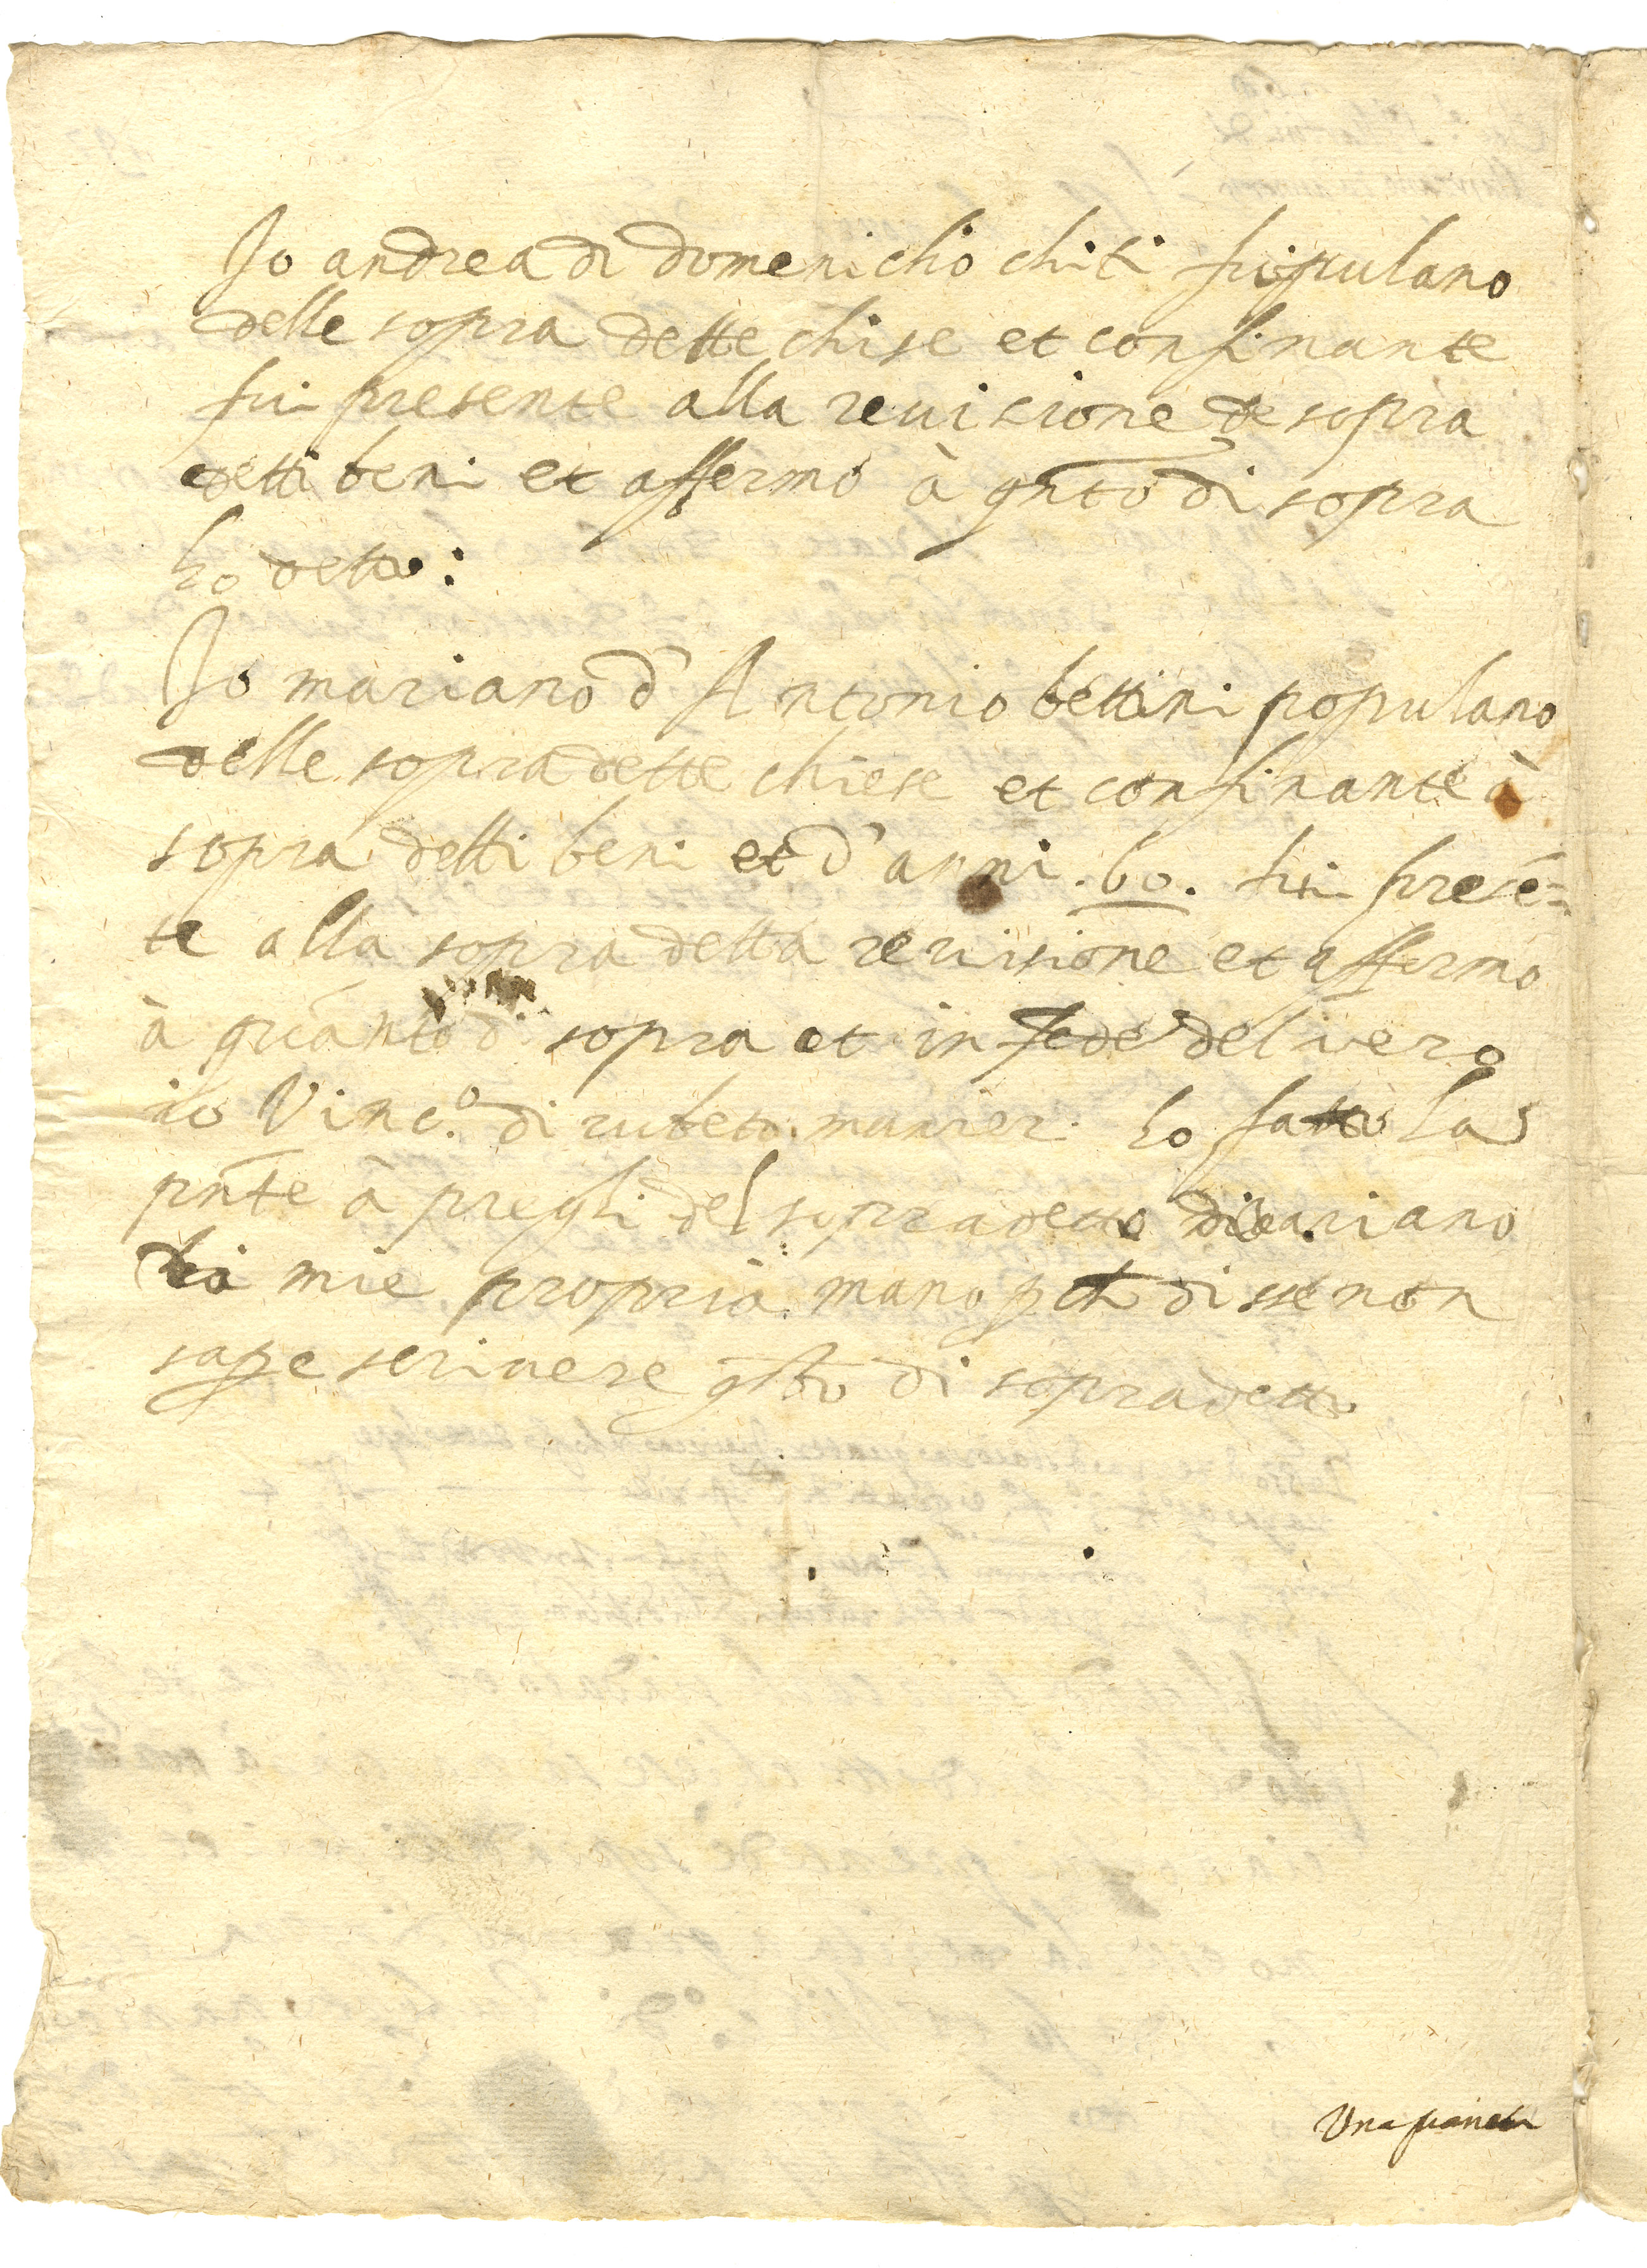 Jo andrea di domenicho chiti pupulano
delle sopra dette chise et confinante
fui presente alla reuisione de sopra
detti beni et affermo à qnto di sopra
ho detto:
Jo mariano d'Antonio bettini populano
delle sopradette chiese et confinante à
sopra detti beni et d'anni .60. fui presē=
te alla sopra detta reuisione et affermo
à quanto di sopra et in fede del vero
io Vinc.o di ho fatto la
pnte à pregli del sopradetto mariano
di mie propria mano disse non
sape scriuere qsto di sopradetto
Una pianeta